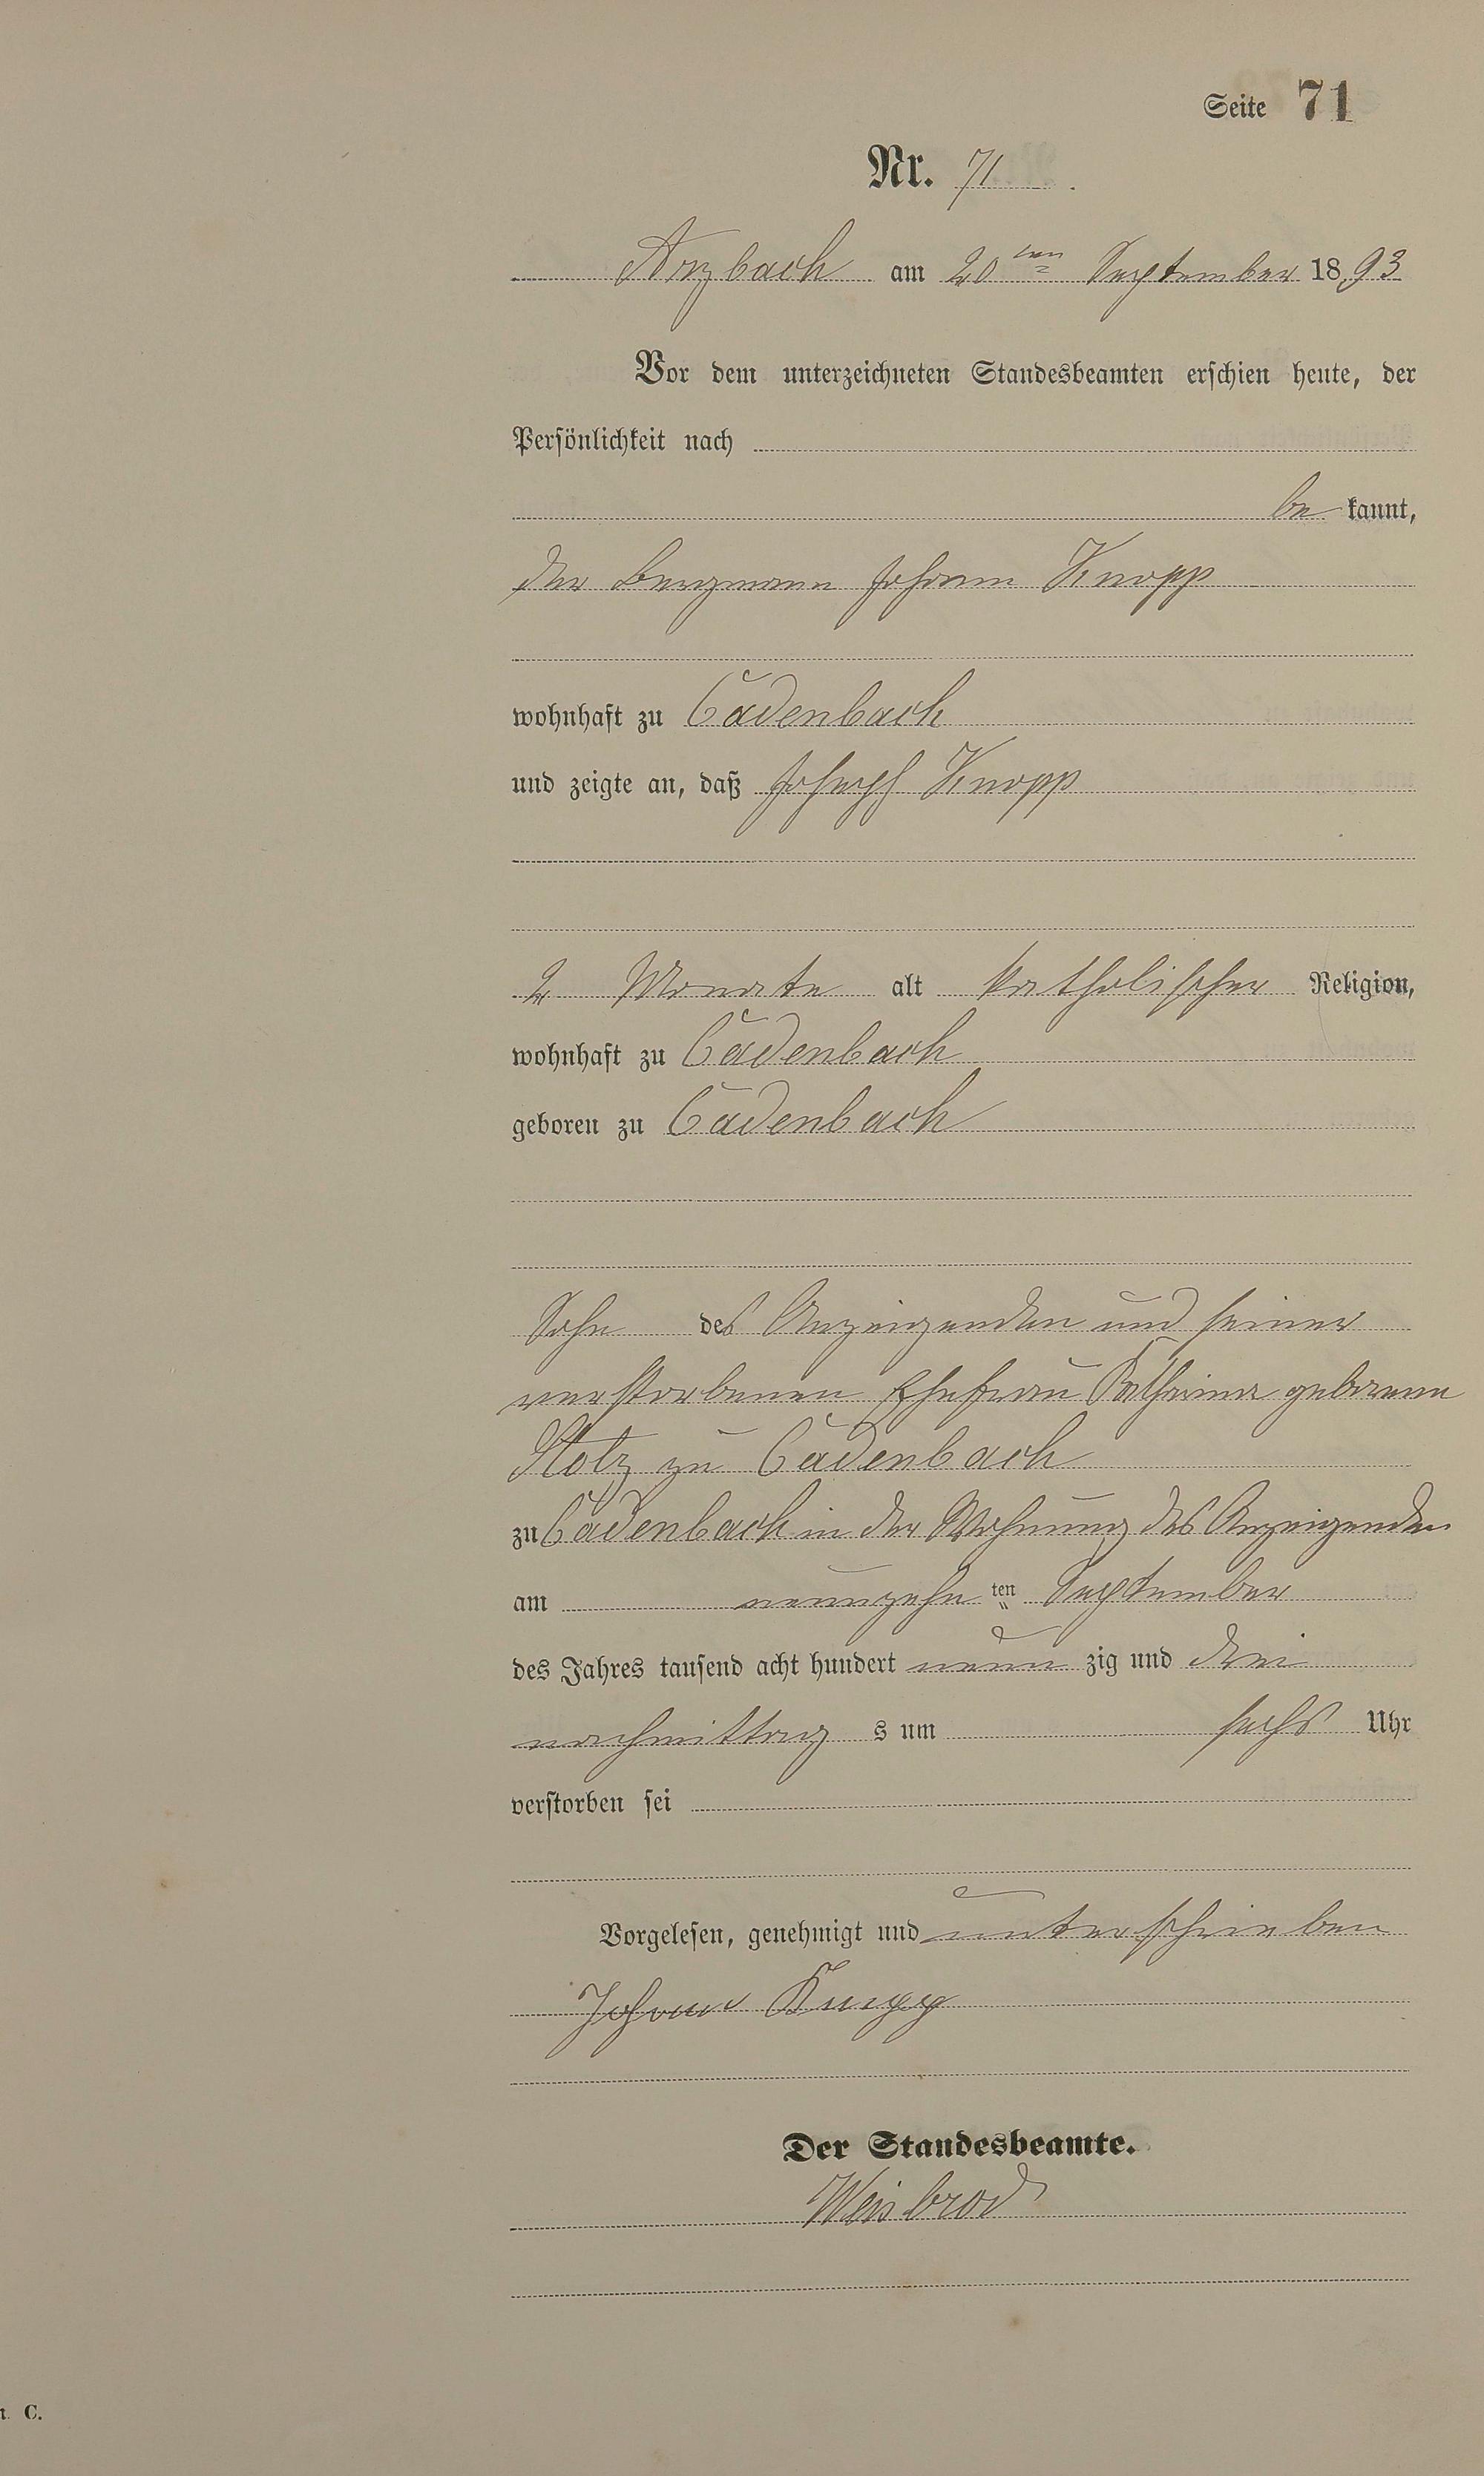 Seite 71
Nr. 71.
Arzbach am 20ten September 1893
Vor dem unterzeichneten Standesbeamten erschien heute, der
Persönlichkeit nach
be kannt,
der Bergmann Johann Knopp
wohnhaft zu Cadenbach
und zeigte an, daß Joseph Knopp
2 Monate alt katholischer Religion,
wohnhaft zu Cadenbach
geboren zu Cadenbach
Sohn des Anzeigenden und seiner
verstorbenen Ehefrau Katharina geborenen
Stotz zu Cadenbach
zu Cadenbach in der Wohnung des Anzeigenden
am neunzehn ten September
des Jahres tausend acht hundert neun zig und drei
nachmittag s um sechs Uhr
verstorben sei
Vorgelesen, genehmigt und unterschrieben
Johann Knopp
Der Standesbeamte.
Weisbrod
C.